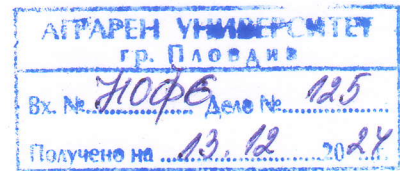 АГРАРЕН УНИВЕРСИТЕТ
гр. Пловдив
Вх. № НОФЕ Дело № 125
Получено на 13. 12 2024 г.